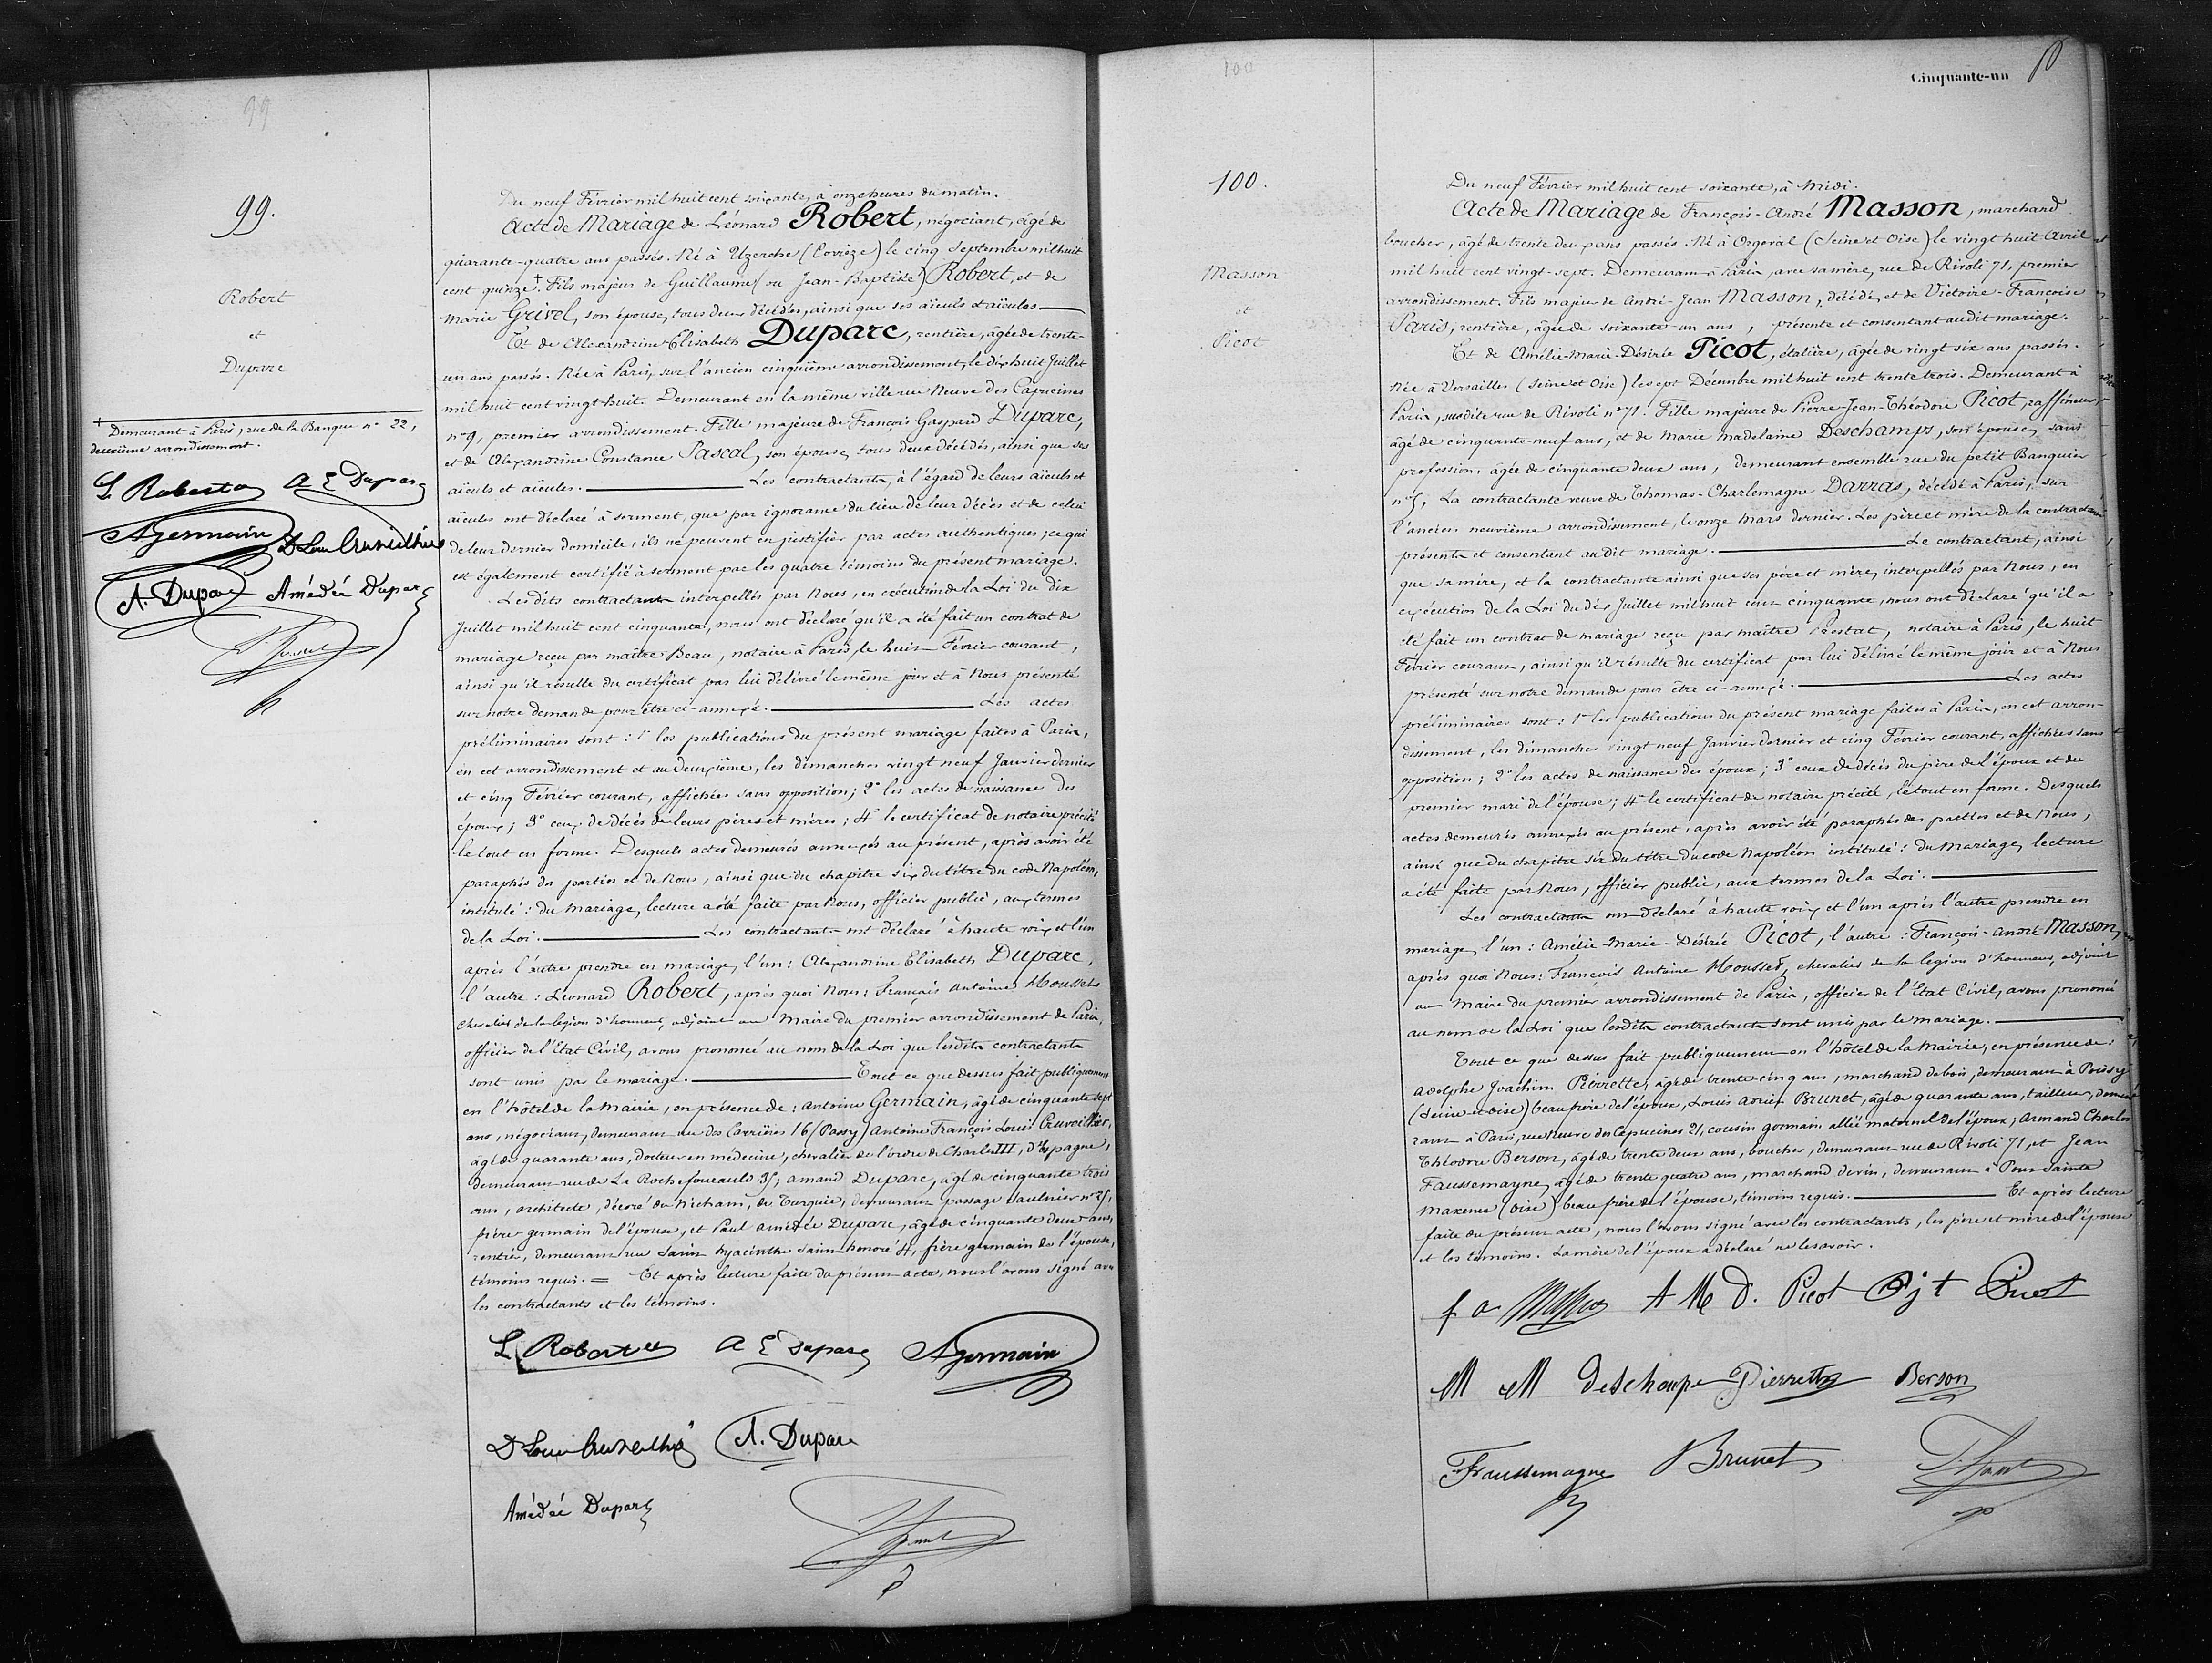 99
99.
Robert
et
Duparc
+
Demeurant à Paris, rue de la Banque n° 22,
deuxième arrondissement.
L. Robert A E Duparc
A Germain Dr Louis Cruveilhier
A. Duparc Amédée Duparc
Du neuf Février mil huit cent soixante, à onze heures du matin.
Acte de Mariage de Léonard Robert, négociant, âgé de
quarante-quatre ans passés. Né à Uzerche (Corrèze) le cinq Septembre mil huit
cent quinze +. Fils majeur de Guillaume (ou Jean-Baptiste) Robert, et de
Marie Grivel, son épouse, tous deux décédés, ainsi que ses aïeuls et aïeules
Et de Alexandrine Elisabeth Duparc, rentière, âgée de trente-
un ans passés. Née à Paris, sur l'ancien cinquième arrondissement, le dix huit Juillet
mil huit cent vingt-huit. Demeurant en la même ville rue Neuve des Capucines
n° 9, premier arrondissement. Fille majeure de François Gaspard Duparc,
et de Alexandrine Constance Pascal, son épouse, tous deux décédés, ainsi que ses
aïeuls et aïeules. Les contractants, à l'égard de leurs aïeuls et
aïeules ont déclaré à serment, que par ignorance du lieu de leur décès et de celui
de leur dernier domicile, ils ne peuvent en justifier par actes authentiques; ce qui
est également certifié à serment par les quatre témoins du présent mariage.
Lesdits contractants interpellés par Nous, en exécution de la Loi du dix
Juillet mil huit cent cinquante, nous ont déclaré qu'il a été fait un contrat de
mariage reçu par maître Beau, notaire à Paris, le huit Février courant,
ainsi qu'il résulte du certificat par lui délivré le même jour et à Nous présenté
sur notre demande pour être ci-annexé. Les actes
préliminaires sont: 1° les publications du présent mariage faites à Paris,
en cet arrondissement et au deuxième, les dimanches vingt neuf Janvier dernier
et cinq Février courant, affichées sans opposition; 2° les actes de naissance des
époux; 3° ceux de décès de leurs pères et mères; 4° le certificat de notaire précité
le tout en forme. Desquels actes demeurés annexés au présent, après avoir été
paraphés des parties et de Nous, ainsi que du chapitre six du titre du code Napoléon,
intitulé: du Mariage, lecture a été faite par Nous, officier public, aux termes
de la Loi. Les contractants ont déclaré à haute voix et l'un
après l'autre prendre en mariage, l'un: Alexandrine Elisabeth Duparc,
l'autre: Léonard Robert, après quoi Nous: François Antoine Housset
chevalier de la légion d'honneur, adjoint au Maire du premier arrondissement de Paris,
officier de l'Etat Civil, avons prononcé au nom de la Loi que lesdits contractants
sont unis par le mariage. Tout ce que dessus fait publiquement
en l'hôtel de la Mairie, en présence de: Antoine Germain, âgé de cinquante sept
ans, négociant, demeurant rue des Carrières 16 (Passy) Antoine François Louis Cruveilhier,
âgé de quarante ans, docteur en médecine, chevalier de l'ordre de Charles III, d'Espagne,
demeurant rue de La Rochefoucauld 35; Amand Duparc, âgé de cinquante trois
ans, architecte, décoré du Nicham, de Turquie, demeurant passage Saulnier n° 25,
frère germain de l'épouse, et Paul Amédée Duparc, âgé de cinquante deux ans,
rentier, demeurant rue Saint Hyacinthe Saint honoré 4, frère germain de l'épouse,
témoins requis. = Et après lecture faite du présent acte, nous l'avons signé avec
les contractants et les témoins.
L Robert A E Duparc A Germain
Dr Louis Cruveilhier A. Duparc
Amédée Duparc
100
Cinquante-un
100.
Masson
et
Picot
Du neuf Février mil huit cent soixante, à Midi.
Acte de Mariage de François-André Masson, marchand
boucher, âgé de trente deux ans passés. Né à Orgeval (Seine et Oise) le vingt huit Avril
mil huit cent vingt-sept. Demeurant à Paris, avec sa mère, rue de Rivoli 71, premier
arrondissement. Fils majeur de André-Jean Masson, décédé, et de Victoire-Françoise
Paris, rentière, âgée de soixante-un ans, présente et consentant audit mariage.
Et de Amélie-Marie-Désirée Picot, étalière, âgée de vingt six ans passés.
Née à Versailles (Seine et Oise) le sept Décembre mil huit cent trente trois. Demeurant à
Paris, susdite rue de Rivoli n° 71. Fille majeure de Pierre-Jean-Théodore Picot, raffineur,
âgé de cinquante-neuf ans, et de Marie Madelaine Deschamps, son épouse, sans
profession, âgée de cinquante deux ans, demeurant ensemble rue du petit Banquier
n° 5, La contractante veuve de Thomas-Charlemagne Darras, décédé à Paris, sur
l'ancien neuvième arrondissement, le onze Mars dernier. Les père et mère de la contractante
présents et consentant au dit mariage. Le contractant, ainsi
que sa mère, et la contractante ainsi que ses père et mère, interpellés par Nous, en
exécution de la Loi du dix Juillet mil huit cent cinquante, nous ont déclaré qu'il a
été fait un contrat de mariage reçu par maître Prestat, notaire à Paris, le huit
Février courant, ainsi qu'il résulte du certificat par lui délivré le même jour et à Nous
présenté sur notre demande pour être ci-annexé. Les actes
préliminaires sont: 1° les publications du présent mariage faites à Paris, en cet arron-
dissement, les dimanches vingt neuf Janvier dernier et cinq Février courant, affichées sans
opposition; 2° les actes de naissance des époux; 3° ceux de décès du père de l'époux et du
premier mari de l'épouse; 4° le certificat de notaire précité, le tout en forme. Desquels
actes demeurés annexés au présent, après avoir été paraphés des parties et de Nous,
ainsi que du chapitre six du titre du code Napoléon intitulé: du Mariage, lecture
a été faite par Nous, officier public, aux termes de la Loi.
Les contractants ont déclaré à haute voix et l'un après l'autre prendre en
mariage, l'un: Amélie-Marie-Désirée Picot, l'autre: François-André Masson,
après quoi Nous: François Antoine Housset, chevalier de la légion d'honneur, adjoint
au Maire du premier arrondissement de Paris, officier de l'Etat Civil, avons prononcé
au nom de la Loi que lesdits contractants sont unis par le mariage.
Tout ce que dessus fait publiquement en l'hôtel de la Mairie, en présence de:
Adolphe Joachim Pierrette, âgé de trente cinq ans, marchand de bois, demeurant à Poissy
(Seine et Oise) beau frère de l'époux, Louis Brunet, âgé de quarante ans, tailleur, demeu-
rant à Paris, rue Neuve des Capucines 21, cousin germain allié maternel de l'époux; Armand Charles
Théodore Berson, âgé de trente deux ans, boucher, demeurant rue de Rivoli 71, et Jean
Faussemagne, âgé de trente quatre ans, marchand de vin, demeurant à Pont Sainte
Maxence (Oise) beau frère de l'épouse, témoins requis. Et après lecture
faite du présent acte, nous l'avons signé avec les contractants, les père et mère de l'épouse
et les témoins. La mère de l'époux a déclaré ne le savoir.
f a Masson A M D. Picot P j t Picot
M M deschamps Pierrette Berson
Faussemagne Brunet